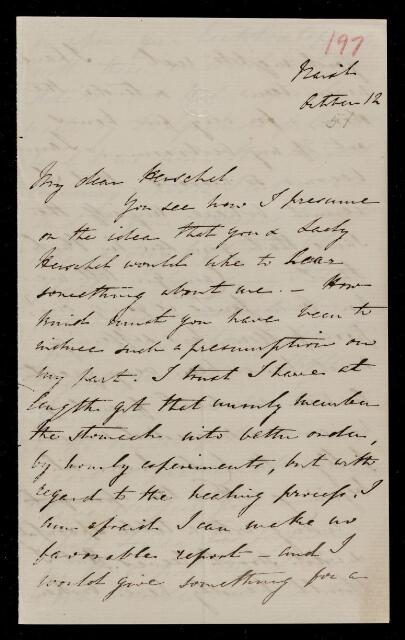 197
October 12
51
My dear Herschel
You see how I presume
on the idea that you & Lady
Herschel would like to hear
something about me. – How
kind must you have been to
induce such a presumption on
my part. I trust I have at
length got that unruly member
the stomach into better order,
by hourly experiments, but with
regard to the healing process I
am afraid I can make no
favorable report – and I
would give something for a